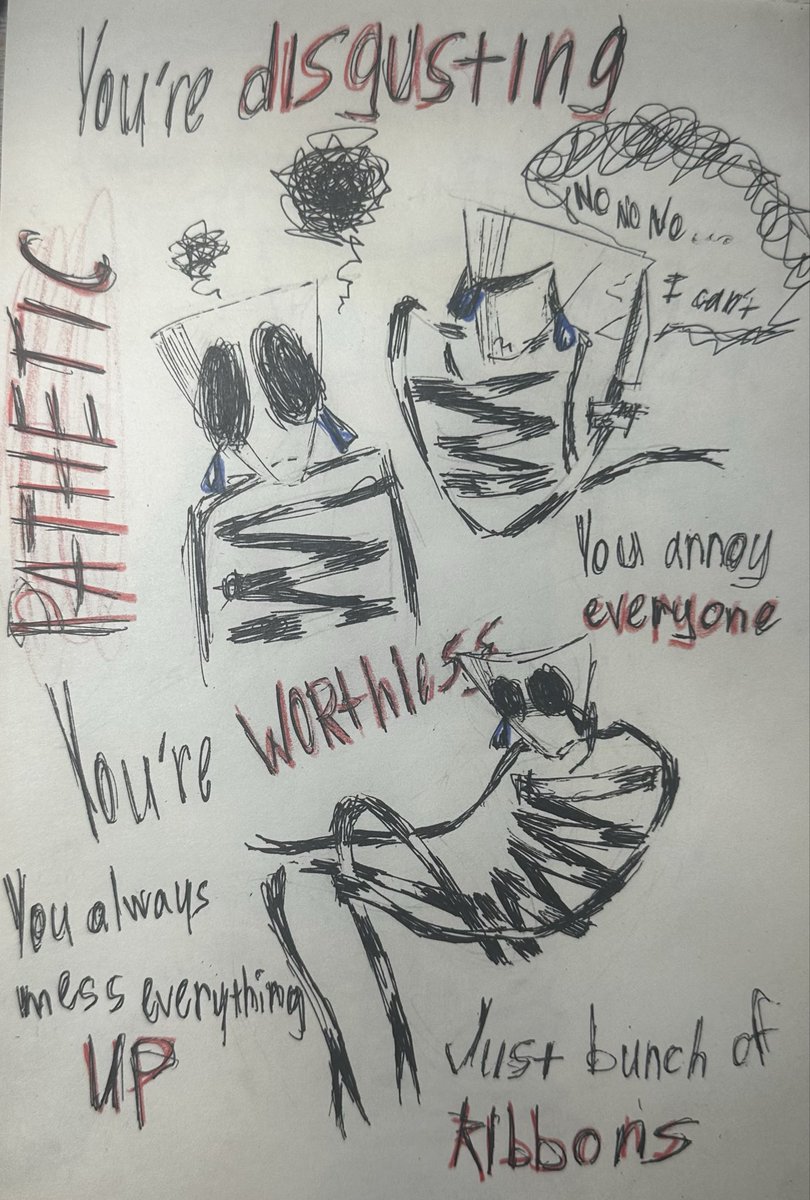 You're disgusting
PATHETIC
No No No...
I can't
You annoy
everyone
You're WORthless
You always
mess everything
UP
Just bunch of
Ribbons